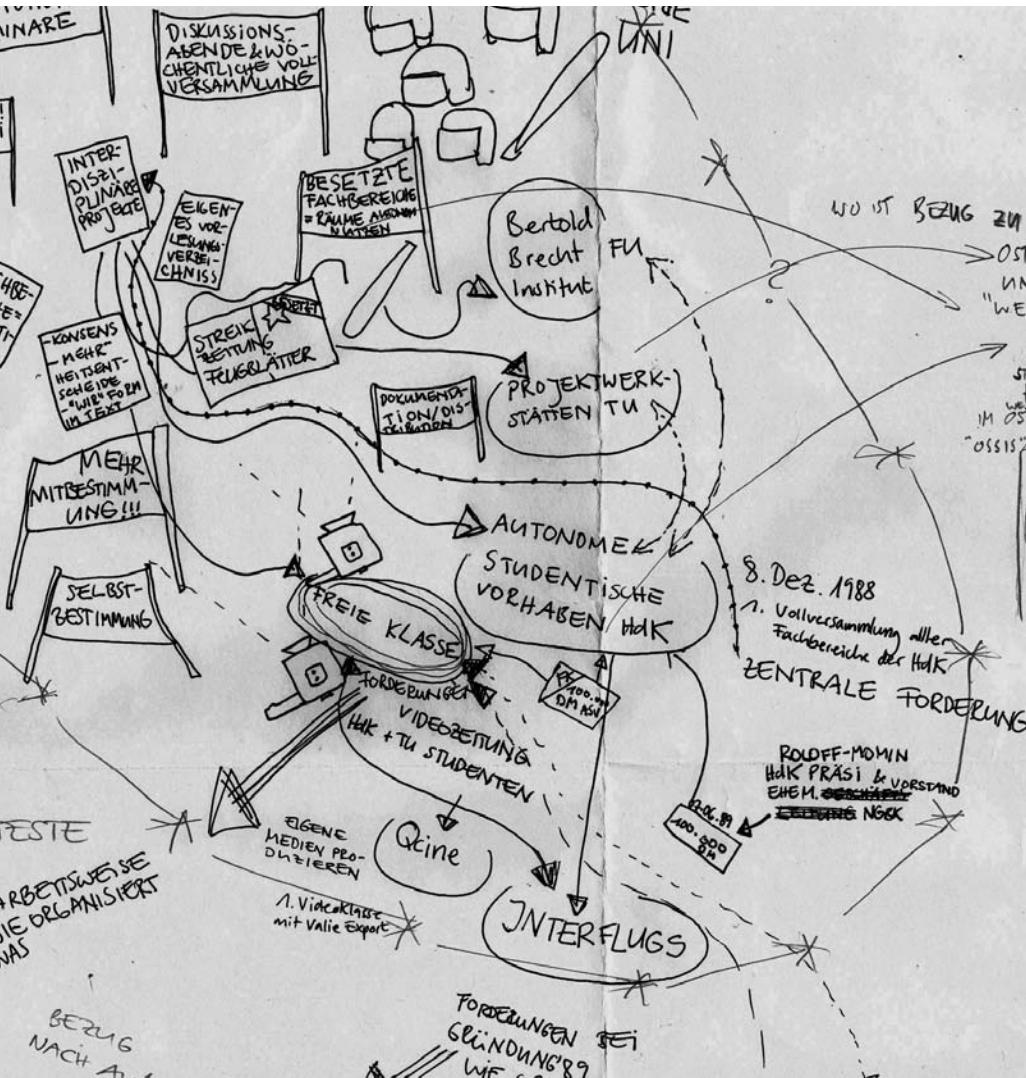 INARE
DISKUSSIONS-
ABENDE & WÖ-
CHENTLICHE VOLL
VERSAMMLUNG
UNI
INTER-
DISZI-
PLINÄRE
PROJEKTE
EIGEN-
ES VOR-
LESUNGS-
VERZEI-
CHNISS
BESETZTE
FACHBEREICHE
= RÄUME
NUTZEN
Bertold
Brecht
Institut
FU
WO IST BEZUG ZU
OST
UN
"WE
?
STREIK
ZEITUNG
FLUGBLÄTTER
BESETZT
-KONSENS
-"MEHR"
HEITSENT-
SCHEIDE
-"WIR" FORM
IM TEXT
DOKUMENTA-
TION/DIS-
TRIBUTION
PROJEKTWERK-
STÄTTEN TU
ST
IM OS
"OSSIS"
MEHR
MITBESTIMM-
UNG!!!
SELBST-
BESTIMMUNG
AUTONOME
STUDENTISCHE
VORHABEN HdK
8. Dez. 1988
1. Vollversammlung aller
Fachbereiche der HdK
ZENTRALE FORDERUNG
FREIE KLASSE
FORDERUNGEN
VIDEOZEITUNG
HdK + TU STUDENTEN
100.000
DM ASV
ROLOFF-MOMIN
HdK PRÄSI & VORSTAND
EHEM. GESCHÄFTS
LEITUNG NGBK
.06.89
100.000
DM
TESTE
ARBEITSWEISE
SIE ORGANISIERT
WAS
EIGENE
MEDIEN PRO-
DUZIEREN
Qcine
1. Videoklasse
mit Valie Export
INTERFLUGS
BEZUG
NACH
FORDERUNGEN BEI
GRÜNDUNG '89